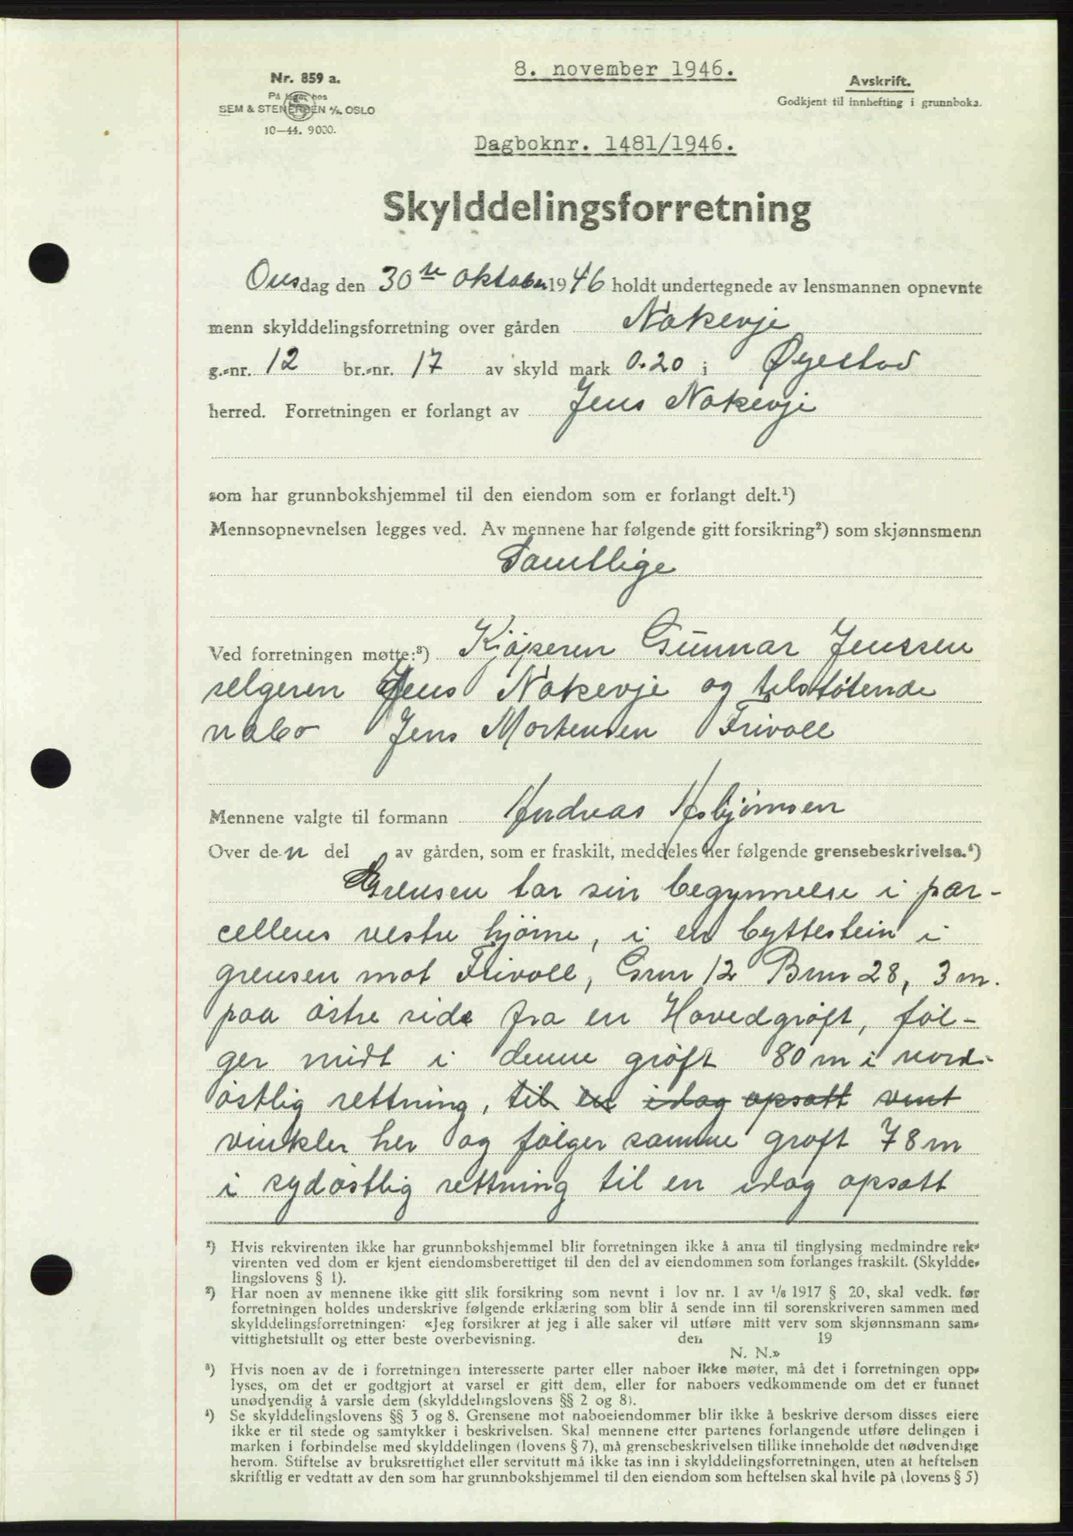 Nr. 859 a.
På lager hos
SEM & STENERSEN A/S, OSLO
10—44. 9000.
8. november 1946.
Avskrift.
Godkjent til innhefting i grunnboka.
Dagboknr. 1481/1946.
Skylddelingsforretning
Onsdag den 30te oktober 1946 holdt undertegnede av lensmannen opnevnte
menn skylddelingsforretning over gården Nakevje
g.-nr. 12 br.-nr. 17 av skyld mark 0.20 i Øyestad
herred. Forretningen er forlangt av Jens Nakevje
som har grunnbokshjemmel til den eiendom som er forlangt delt.¹)
Mennsopnevnelsen legges ved. Av mennene har følgende gitt forsikring²) som skjønnsmenn
Samtlige
Ved forretningen møtte:³) Kjøperen Gunnar Jenssen
selgeren Jens Nakevje og tilstøtende
nabo Jens Mortensen Frivoll
Mennene valgte til formann Andreas Asbjørnsen
Over den del av gården, som er fraskilt, meddeles her følgende grensebeskrivelse.⁴)
Grensen tar sin begynnelse i par-
cellens vestre hjørne, i en byttestein i
grensen mot Frivoll, Gnr 12 Bnr 28, 3 m.
paa østre side fra en Hovedgrøft, føl-
ger midt i denne grøft 80 m i nord-
østlig rettning, til en idag opsatt
vinkler her og følger samme grøft 78 m
i sydøstlig rettning til en idag opsatt
¹) Hvis rekvirenten ikke har grunnbokshjemmel blir forretningen ikke å anta til tinglysing medmindre rek-
virenten ved dom er kjent eiendomsberettiget til den del av eiendommen som forlanges fraskilt. (Skyldde-
lingslovens § 1).
²) Har noen av mennene ikke gitt slik forsikring som nevnt i lov nr. 1 av 1/6 1917 § 20, skal vedk. før
forretningen holdes underskrive følgende erklæring som blir å sende inn til sorenskriveren sammen med
skylddelingsforretningen: «Jeg forsikrer at jeg i alle saker vil utføre mitt verv som skjønnsmann sam-
vittighetsfullt og etter beste overbevisning. den 19
N. N.»
³) Hvis noen av de i forretningen interesserte parter eller naboer ikke møter, må det i forretningen opp-
lyses, om det er godtgjort at varsel er gitt dem, eller for naboers vedkommende om det er funnet
unødvendig å varsle dem (skylddelingslovens §§ 2 og 8).
⁴) Se skylddelingslovens §§ 3 og 8. Grensene mot naboeiendommer blir ikke å beskrive dersom disses eiere
ikke er til stede og samtykker i beskrivelsen. Skal mennene etter partenes forlangende utføre delingen i
marken i forbindelse med skylddelingen (lovens § 7), må grensebeskrivelsen tillike inneholde det nødvendige
herom. Stiftelse av bruksrettighet eller servitutt må ikke tas inn i skylddelingsforretningen, uten at heftelsen
skriftlig er vedtatt av den som har grunnbokshjemmel til den eiendom som heftelsen skal hvile på (lovens § 5)